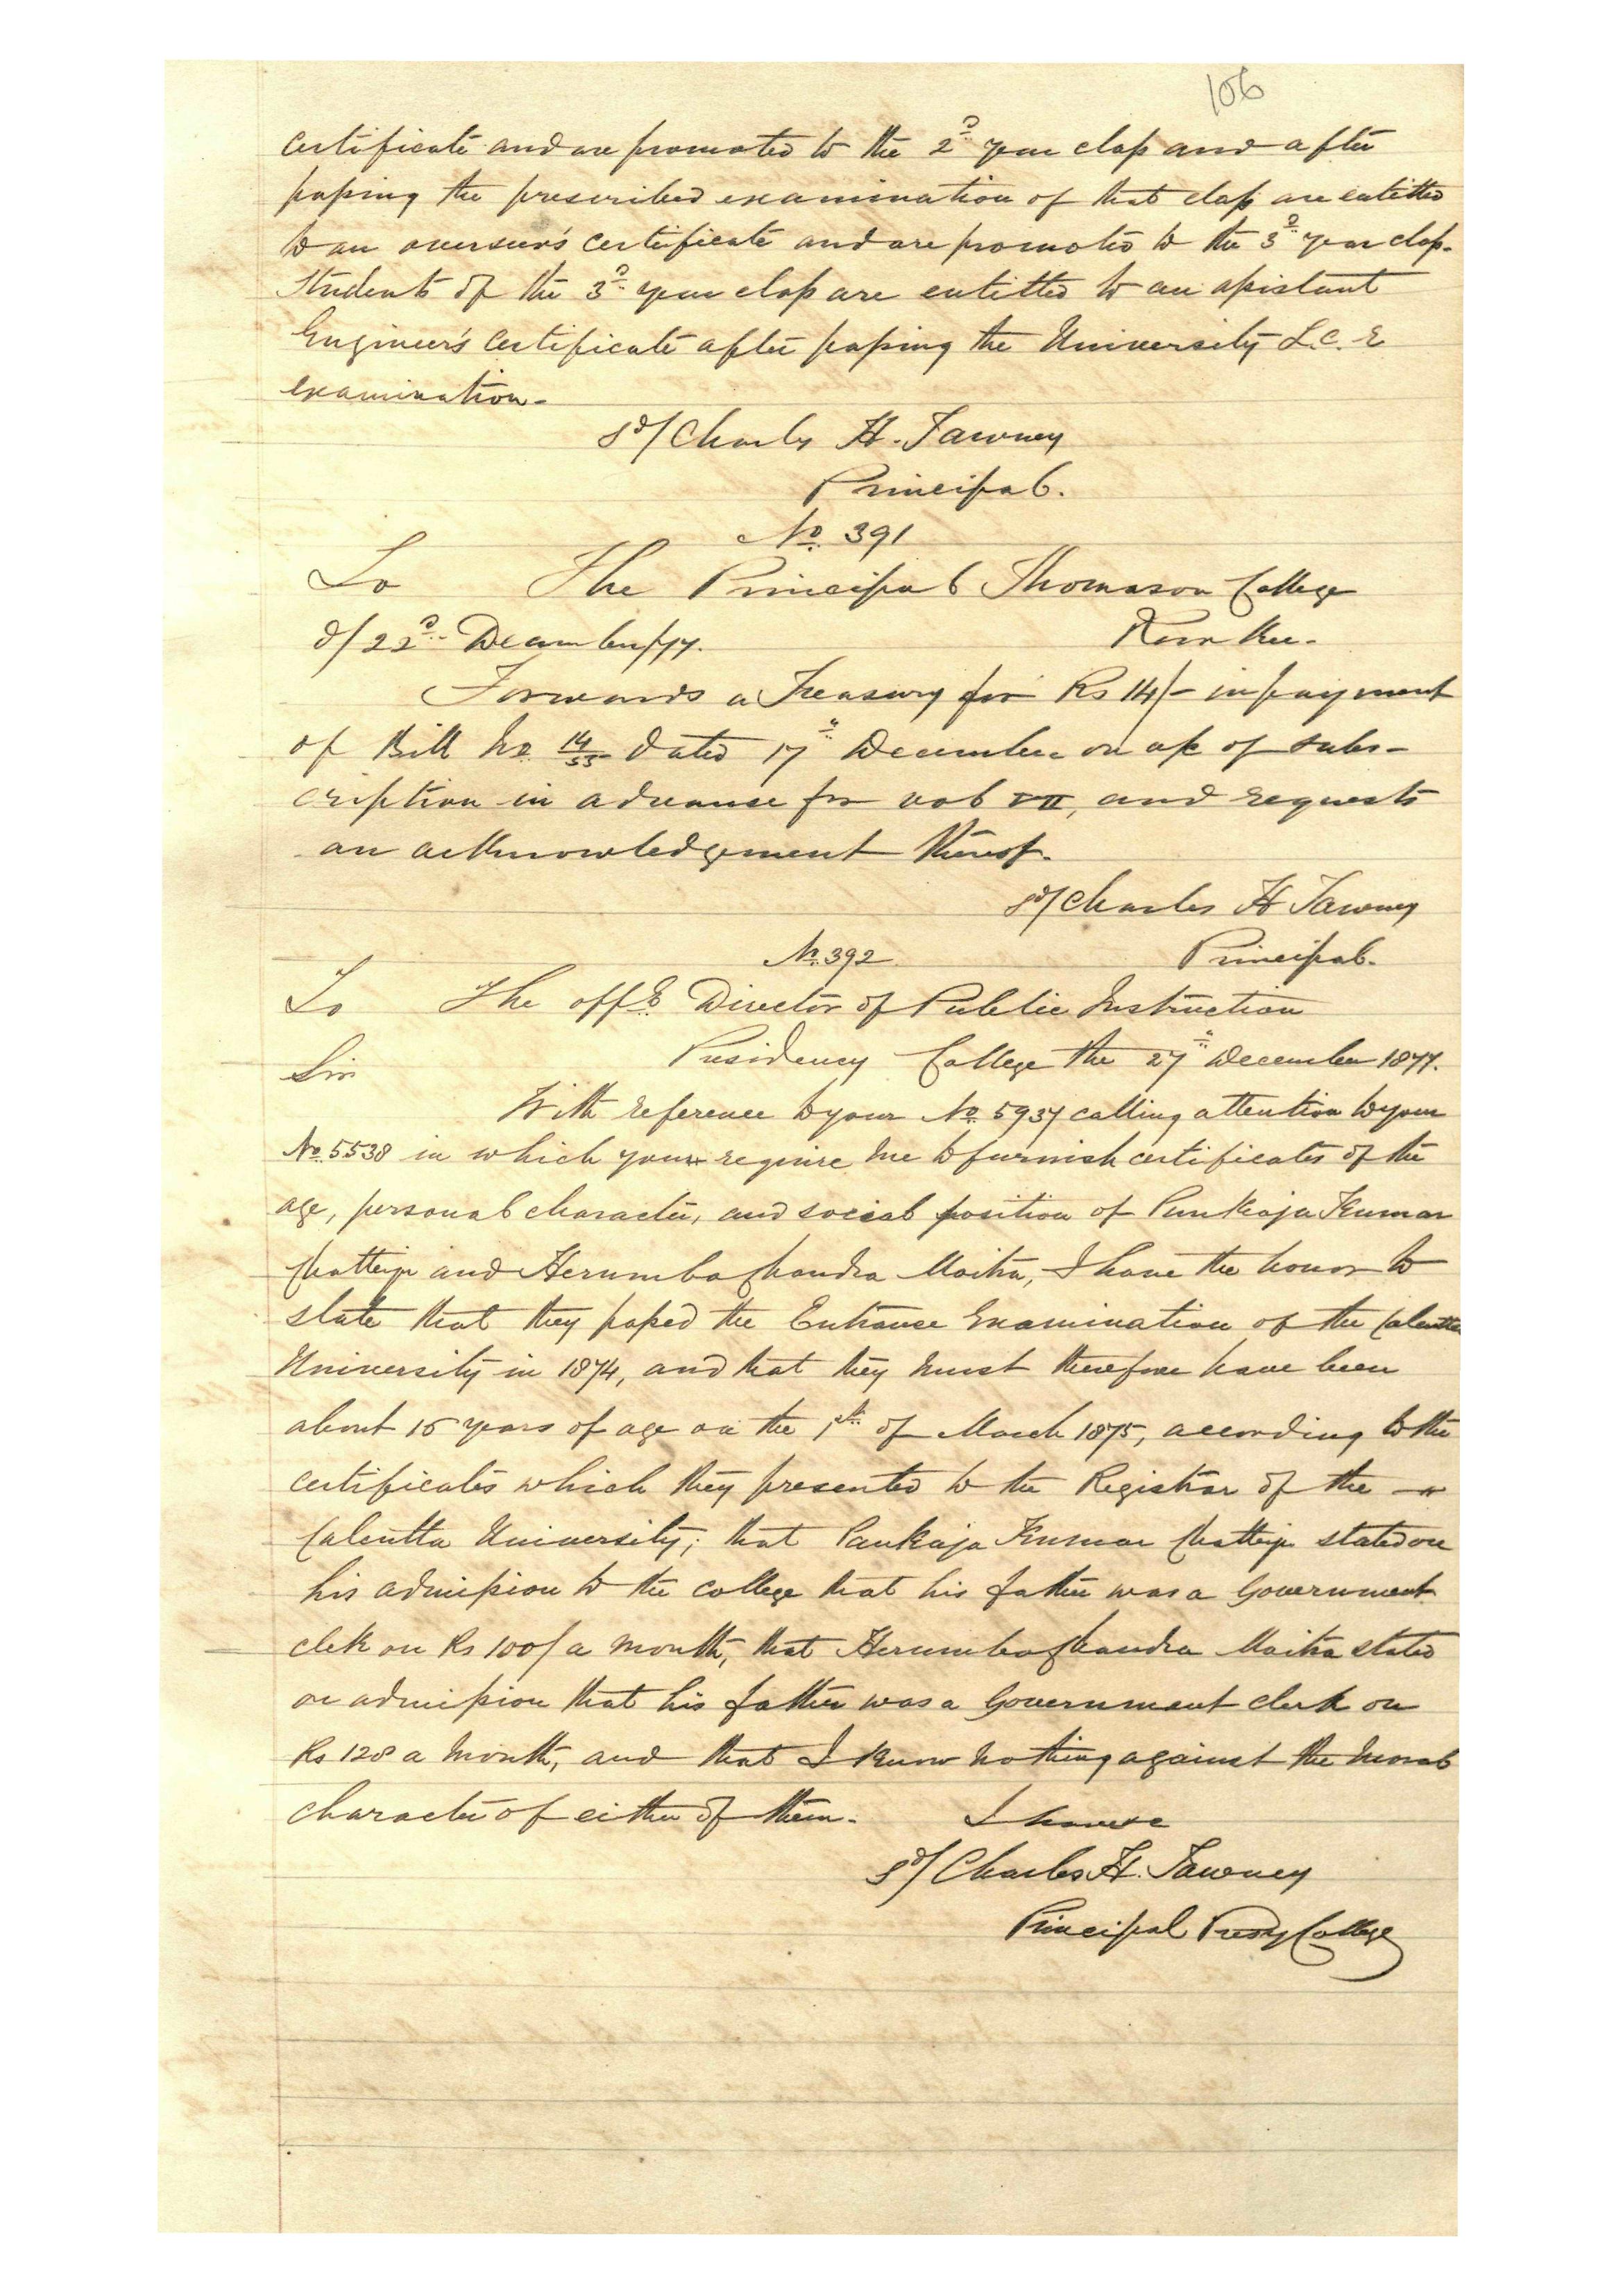 106
certificate and are promoted to the 2d year class and after
passing the prescribed examination of that class are entitled
to an overseer's certificate and are promoted to the 3d year class.
Students of the 3d year class are entitled to an assistant
Engineer's certificate after passing the University L.C.E
examination.
Sd/ Charles H. Tawney
Principal.
No. 391
To The Principal Thomason College
d/ 22d December/77. Roorkee.
Forwards a Treasury for Rs 14/- in payment
of Bill No. 14/55 dated 17th December on a/c of subs-
cription in advance for vol VII, and requests
an acknowledgement thereof.
Sd/ Charles H Tawney
No. 392 Principal.
To The offg Director of Public Instruction
Presidency College the 27th December 1877.
Sir
With reference to your No. 5937 calling attention to your
No. 5538 in which you require me to furnish certificates of the
age, personal character, and social position of Punkaja Kumar
Chatterji and Herumba Chandra Maitra, I have the honor to
state that they passed the Entrance Examination of the Calcutta
University in 1874, and that they must therefore have been
about 15 years of age on the 1st of March 1875, according to the
certificates which they presented to the Registrar of the
Calcutta University; that Pankaja Kumar Chatterji stated on
his admission to the college that his father was a Government
clerk on Rs 100/ a month, that Herumba Chandra Maitra stated
on admission that his father was a Government clerk on
Rs 128 a month, and that I know nothing against the moral
character of either of them. I have &c
Sd/ Charles H. Tawney
Principal Presy College